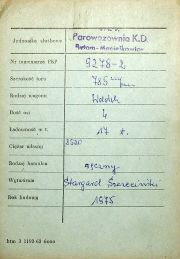 Jednostka służbowa
Parowozownia K.D.
Bytom-Maciejków
Nr inwentarza PKP 9278-2
Szerokość toru 785 mm
Rodzaj wagonu Wddxh
Ilość osi 4
Ładowność w t. 17 t.
Ciężar własny 8520
Rodzaj hamulca ręczny
Wytwórnia Stargard Szczeciński
Rok budowy 1975